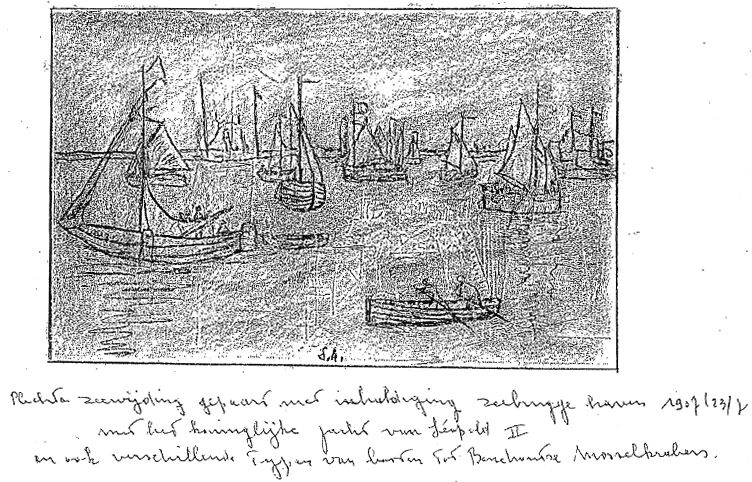 S.A.
zeewijding gepaard met inhuldiging zeebrugge haven 1907 (23/7
met het koninglijke jacht van Léopold II
en ook verschillende Typen van boten tot Mosselkrabers.